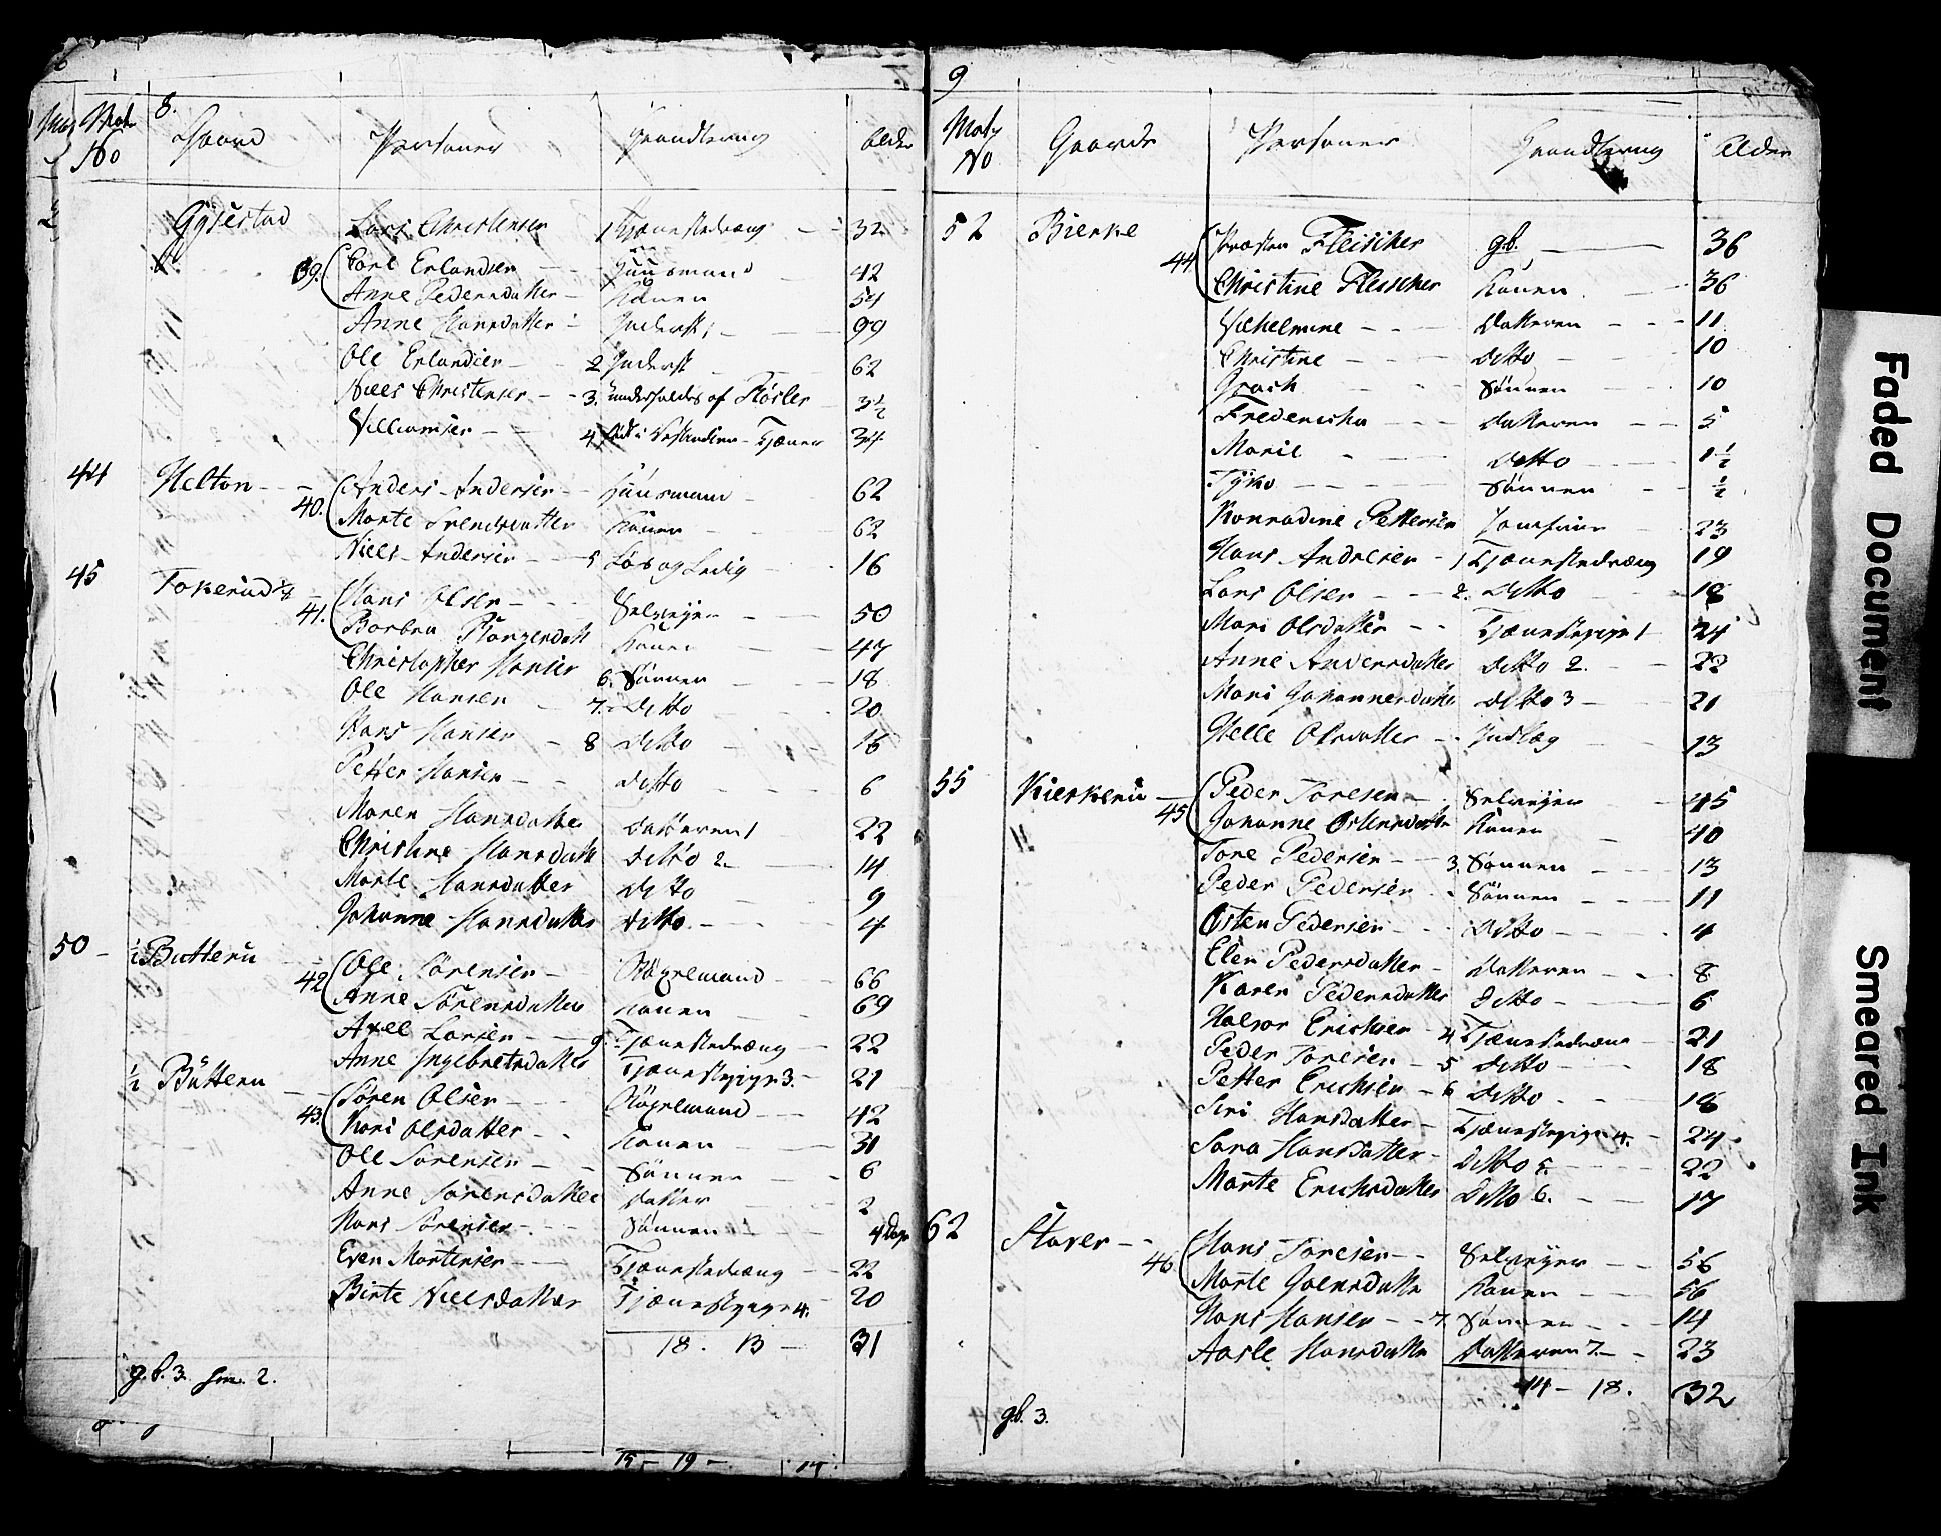 8.
Mat No Gaard Personer Haandtering Alder
Gysestad Lars Christensen 1 Tjænestedræng 32
39. Carl Erlandsen Huusmand 42
Anne Pedersdatter Konen 54
Anne Hansdatter Inderst 99
Ole Erlandsen 2 Inderst 62
Niels Christensen 3. underholdes af Fløsler 3½
Villumsen 4 Tjæner 34
44 Helton 40. Anders Andersen Huusmand 62
Marte Svendsdatter Konen 62
Niels Andersen 5 Løs og Ledig 16
45 Tokerud 41. Hans Olsen Selvejer 50
Barbra Konen 47
Christopher Hansen 6. Sønnen 18
Ole Hansen 7. Ditto 20
Hans Hansen 8 Ditto 16
Petter Hansen Ditto 6
Maren Hansdatter Datteren 1 22
Christine Hansdatt Ditto 2. 14
Marte Hansdatter Ditto 9
Johanne Hansdatter Ditto 4
50 ½ Butteru 42 Ole Sørensen 66
Anne Sørensdatter Konen 69
Axel Larsen 9. Tjænestedræng 22
Anne Ingebretsdatter Tjænestepige 3. 21
½ Butteru 43. Søren Olsen 42
Kari Olsdatter Konen 31
Ole Sørensen Sønnen 6
Anne Sørensdatter Datter 2
Hans Sørensen Sønnen 4 Dage
Even Mortensen Tjænestedræng 22
Birte Nielsdatter Tjænestepige 4. 20
18. 13 31
g.b. 3. hm. 2.
15 - 19 -
9
Mat No Gaarde Personer Haandtering Alder
52 Bierke 44 Præsten Fleischer gb. 36
Christine Fleischer Konen 36
Vilhelmine Datteren 11
Christine Ditto 10
Sønnen 10
Fredericha Datteren 5
Marie Ditto 1½
Tyko Sønnen ½
Konradine Pettersen Jomfrue 23
Hans Andresen 1 Tjænestedræng 19
Lars Olsen 2. Ditto 18
Mari Olsdatter Tjænestepige 1 24
Anne Andersdatter Ditto 2. 22
Mari Johannesdatter Ditto 3 21
Helle Olsdatter Indlæg 13
55 Kierkeru 45 Peder Toresen Selvejer 45
Johanne Ostensdatter Konen 40
Tore Pedersen 3. Sønnen 13
Peder Pedersen Sønnen 11
Østen Pedersen Ditto 4
Elen Pedersdatter Datteren 8
Karen Pedersdatter Ditto 6
Halvor Erichsen 4 Tjænestedræng 21
Peder Toresen 5 Ditto 18
Petter Erichsen 6 Ditto 18
Siri Hansdatter Tjænestepige 4. 24
Sara Hansdatter Ditto 5. 22
Marte Erichsdatter Ditto 6. 17
62 Haver 46 Hans Toresen Selvejer 56
Marte Konen 56
Hans Hansen 7. Sønnen 14
Aasle Hansdatter Datteren 7. 23
14 - 18. 32
gb. 3.
Faded Document
Smeared Ink